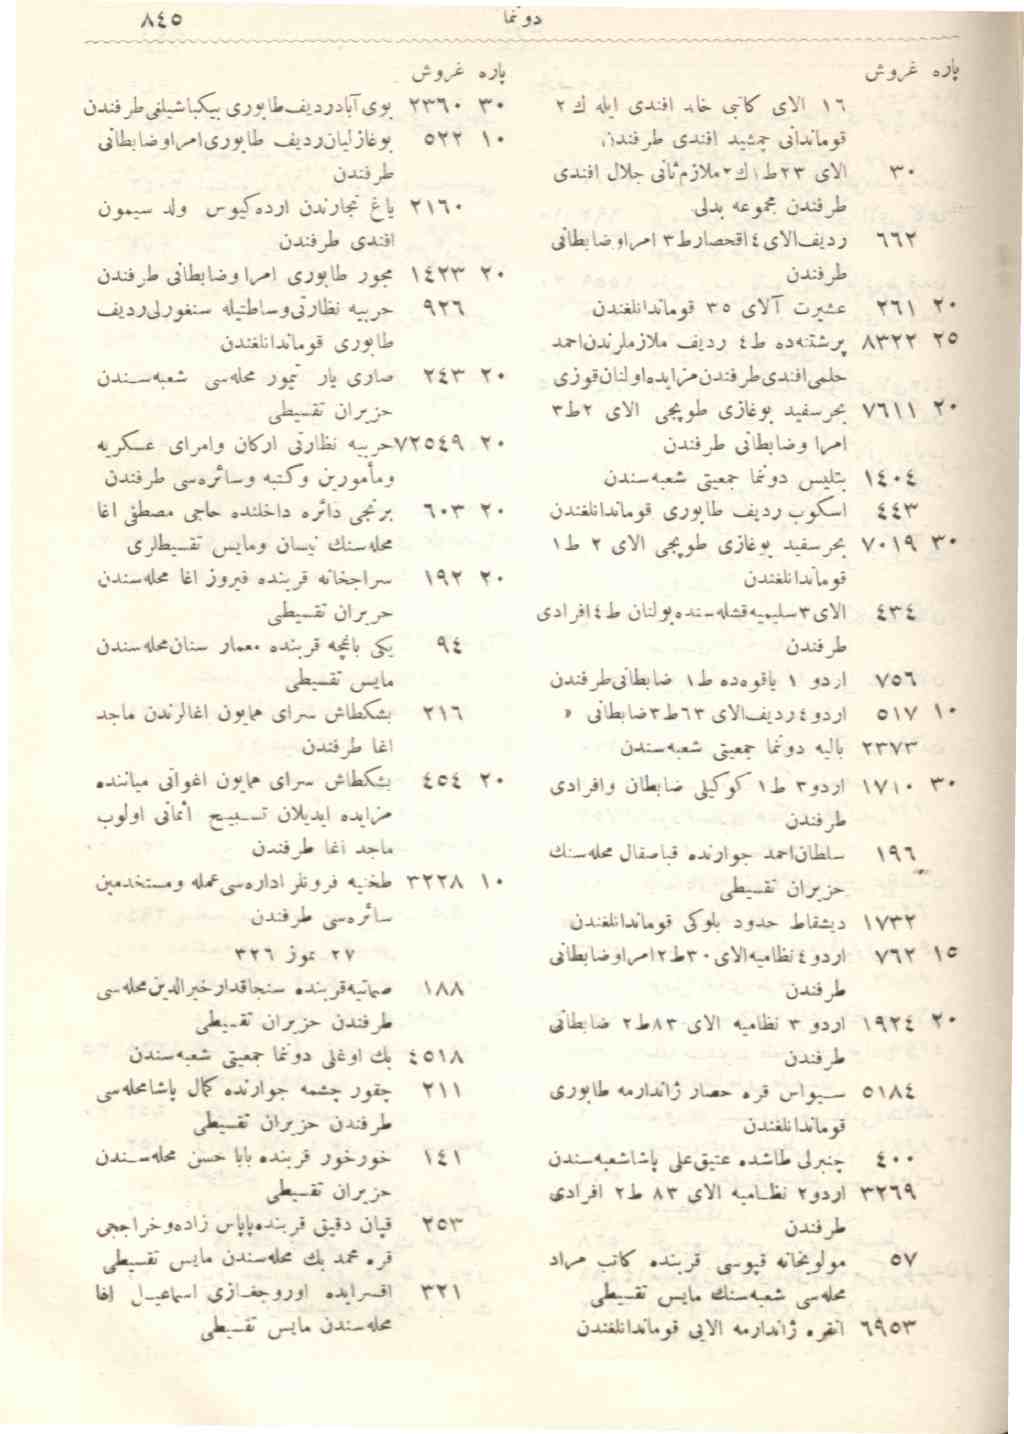 دوننما
٨٤٥
پاره غروش
١٦ الای كاتبی خالد افندی ایله ك ٢
قوماندانی جمشید افندی طرفندن
٣٠ الای ٢٣ ط ١ ك ٢ ملازم ثانی جلال افندی
طرفندن مجموعه بدلی
٦٦٢ ردیف الای ٤ اقحصار ط ٣ امرا وضابطانی
طرفندن
٢٠ ٢٦١ عشیرت آلای ٣٥ قوماندانلغندن
٢٥ ٨٣٢٢ پرشتنه ده ط ٤ ردیف ملازملرندن احمد
حلمی افندی طرفندن مزایده اولنان قوزی
٢٠ ٧٦١١ بحرسفید بوغازی طوپجی الای ٢ ط ٣
امرا وضابطانی طرفندن
١٤٠٤ بتلیس دوننما جمعیتی شعبه سندن
٤٤٣ اسكوب ردیف طابوری قوماندانلغندن
٣٠ ٧٠١٩ بحرسفید بوغازی طوپجی الای ٢ ط ١
قوماندانلغندن
٤٣٤ الای ٣ سلیمیه قشله سنده بولنان ط ٤ افرادی
طرفندن
٧٥٦ اردو ١ یاقوه ده ط ١ ضابطانی طرفندن
١٠ ٥١٧ اردو ٤ ردیف الای ٦٣ ط ٣ ضابطانی »
٢٣٧٣ بالیه دوننما جمعیتی شعبه سندن
٣٠ ١٧١٠ اردو ٣ ط ١ كوكیلی ضابطان وافرادی
طرفندن
١٩٦ سلطان احمد جوارنده قباصقال محله سنك
حزیران تقسیطی
١٧٣٢ دیشقاط حدود بلوكی قوماندانلغندن
١٥ ٧٦٢ اردو ٤ نظامیه الای ٣٠ ط ٢ امرا وضابطانی
طرفندن
٢٠ ١٩٢٤ اردو ٣ نظامیه الای ٨٣ ط ٢ ضابطانی
طرفندن
٥١٨٤ سیواس قره حصار ژاندارمه طابوری
قوماندانلغندن
٤٠٠ چنبرلی طاشده عتیق علی پاشا شعبه سندن
٣٢٦٩ اردو ٢ نظامیه الای ٨٣ ط ٢ افرادی
طرفندن
٥٧ مولویخانه قپوسی قربنده كاتب مراد
محله سی شعبه سنك مایس تقسیطی
٦٩٥٣ انقره ژاندارمه الایی قوماندانلغندن
پاره غروش
٣٠ ٢٣٦٠ بوی آباد ردیف طابوری بیكباشیلغی طرفندن
١٠ ٥٢٢ بوغازلیان ردیف طابوری امرا وضابطانی
طرفندن
٢١٦٠ یاغ تجارندن ارده كیوس ولد سیمون
افندی طرفندن
٢٠ ١٤٢٣ مجور طابوری امرا وضابطانی طرفندن
٩٢٦ حربیه نظارتی وساطتیله سنغورلی ردیف
طابوری قوماندانلغندن
٢٠ ٢٤٣ صاری یار تیمور محله سی شعبه سندن
حزیران تقسیطی
٢٠ ٧٢٥٤٩ حربیه نظارتی اركان وامرای عسكریه
ومأمورین وكتبه وسائره سی طرفندن
٢٠ ٦٠٣ برنجی دائره داخلنده حاجی مصطفی اغا
محله سنك نیسان ومایس تقسیطلری
٢٠ ١٩٢ سراجخانه قربنده فیروز اغا محله سندن
حریران تقسیطی
٩٤ یكی باغچه قربنده معمار سنان محله سندن
مایس تقسیطی
٢١٦ بشكطاش سرای همایون اغالرندن ماجد
اغا طرفندن
٢٠ ٤٥٤ بشكطاش سرای همایون اغواتی میاننده
مزایده ایدیلان تسبیح اثمانی اولوب
ماجد اغا طرفندن
١٠ ٣٢٢٨ طخنیه فرونلر اداره سی عمله ومستخدمین
سائره سی طرفندن
٢٧ تموز ٣٢٦
١٨٨ صماتیه قربنده سنجاقدار خیرالدین محله سی
طرفندن حزیران تقسیطی
٤٥١٨ بك اوغلی دوننما جمعیتی شعبه سندن
٢١١ چقور چشمه جوارنده كمال پاشا محله سی
طرفندن حزیران تقسیطی
١٤١ خورخور قربنده بابا حسن محله سندن
حزیران تقسیطی
٢٥٣ قپان دقیق قربنده پاپاس زاده وخراججی
قره محمد بك محله سندن مایس تقسیطی
٣٢١ اقسرایده اوروجغازی اسماعیل اغا
محله سندن مایس تقسیطی